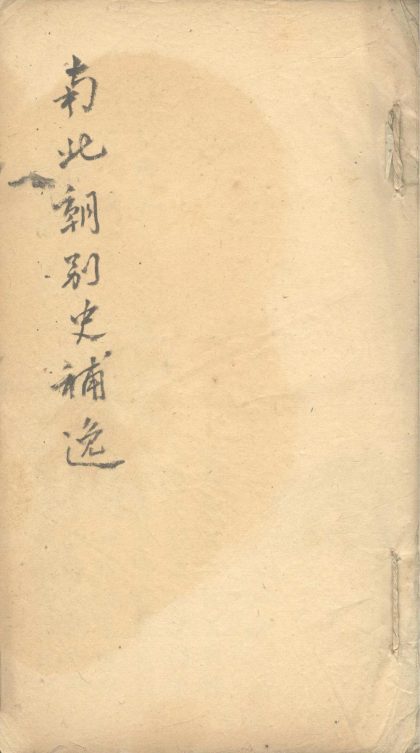 南北朝別史補逸